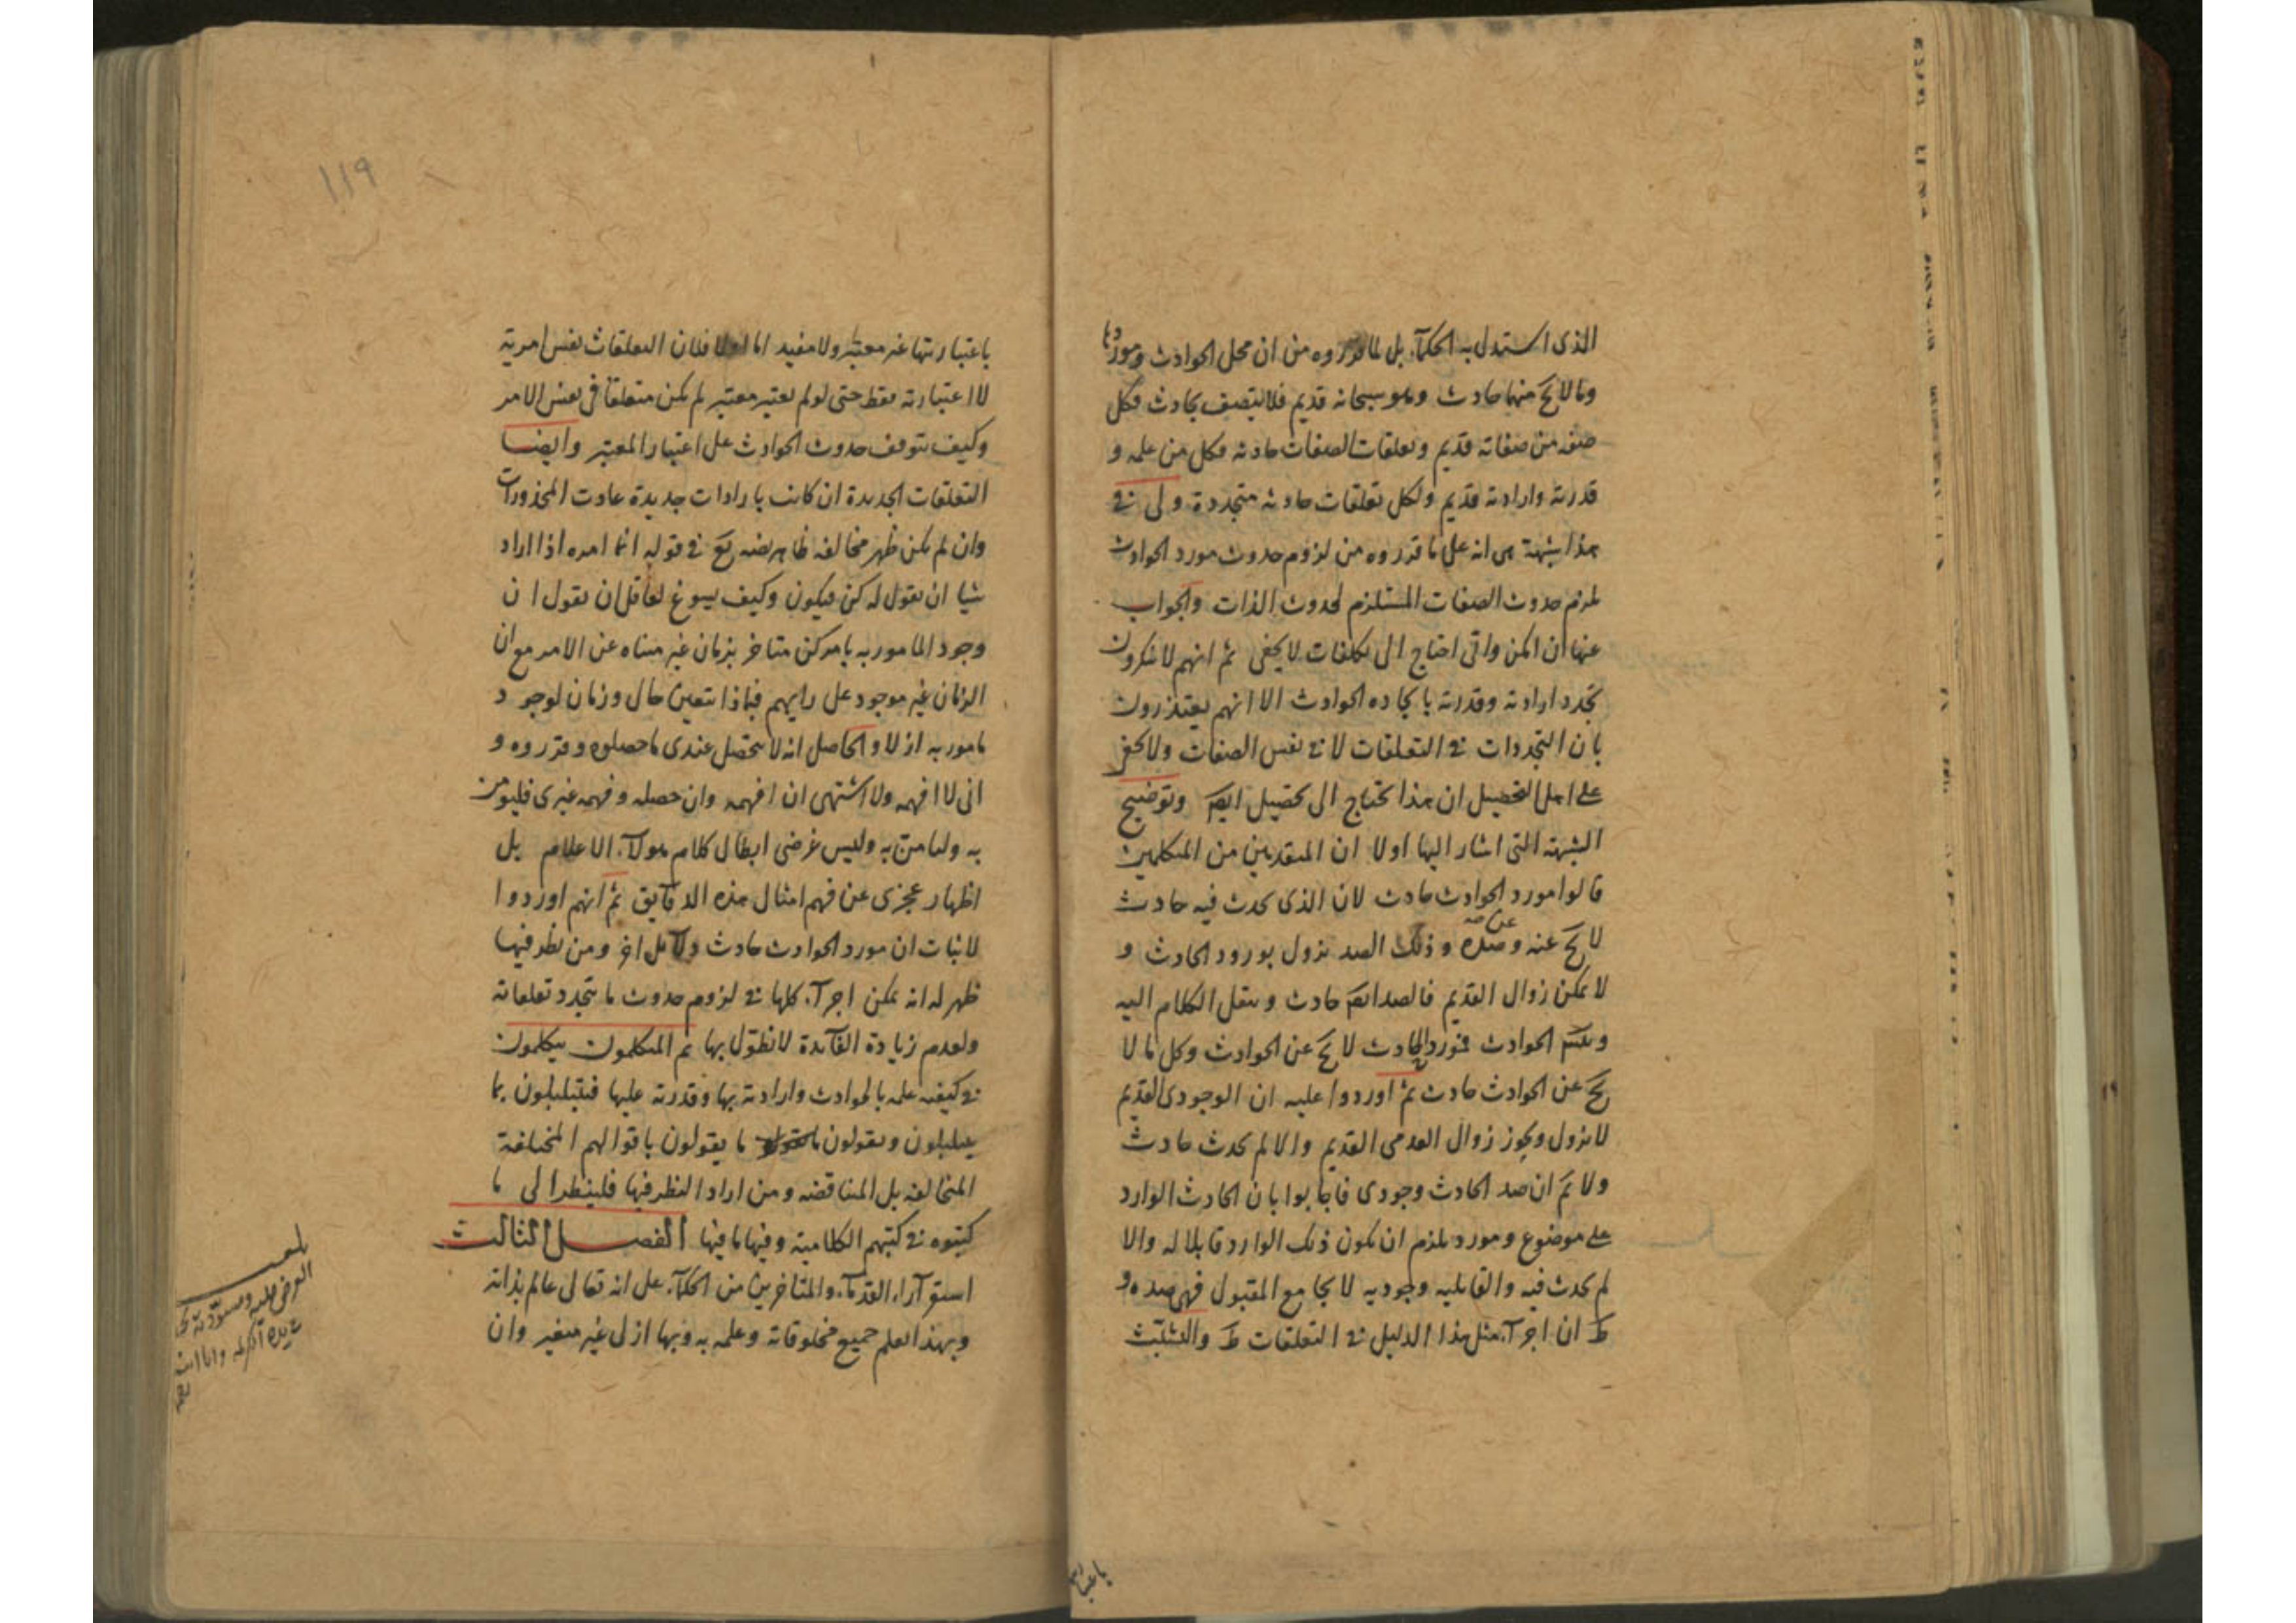 الذى استدل به الحكمآء بل لما قرروه من ان محل الحوادث وموردها
وما لا يخ منها حادث وهو سبحانه قديم فلا يتصف بحادث فكل
صفه من صفاته قديم وتعلقات الصفات حادثه فكل من علمه و
قدرته وارادته قديم ولكل تعلقات حادثه متجددة ولى فى
هذا شبهة هى انه على ما قرروه من لزوم حدوث مورد الحوادث
لزم حدوث الصفات المستلزم لحدوث الذات والجواب
عنها ان امكن واتى احتاج الى تكلفات لا يخفى ثم انهم لا ينكرون
تجدد ارادته وقدرته بايجاده الحوادث الا انهم يعتذرون
بان التجددات فى التعلقات لا فى نفس الصفات ولا يخفى
على اهل التحصيل ان هذا يحتاج الى تحصيل ايضا وتوضيح
الشبهة التى اشار اليها اولا ان المتقدمين من المتكلمين
قالوا مورد الحوادث حادث لان الذى يحدث فيه حادث
لا يخ عنه وعن ضده وذلك الضد يزول بورود الحادث و
لا يمكن زوال القديم فالضد ايضا حادث وينقل الكلام اليه
الحوادث فمورد الحادث لا يخ عن الحوادث وكل ما لا
يخ عن الحوادث حادث ثم اوردوا عليه ان الوجودى القديم
لا يزول ويجوز زوال العدمى القديم والا لم يحدث حادث
ولا نم ان ضد الحادث وجودى فاجابوا بان الحادث الوارد
على موضوع ومورد يلزم ان يكون ذلك الوارد قابلا له والا
لم يحدث فيه والقابليه وجوديه لا يجامع المقبول فهى ضده و
ظ ان اجرآء مثل هذا الدليل فى التعلقات ظ والتشبث
باعتبار
١١٩
باعتباريتها غير معتبر ولا مفيد اما اولا فلان التعلقات نفس امرية
لا اعتباريه فقط حتى لو لم يعتبر معتبر لم يكن متعلقا فى نفس الامر
وكيف يتوقف حدوث الحوادث على اعتبار المعتبر وايضا
التعلقات الجديدة ان كانت بارادات جديدة عادت المحذورات
وان لم يكن ظهر مخالفه ظاهر نصه تع فى قوله انما امره اذا اراد
شيا ان يقول له كن فيكون وكيف يسوغ لعاقل ان يقول ان
وجود المامور به بامر كن متاخر بزمان غير متناه عن الامر مع ان
الزمان غير موجود على رايهم فبماذا يتعين حال وزمان لوجود
مامور به ازلا والحاصل انه لا يتحصل عندى ما حصلوه وقرروه و
انى لا افهمه ولا اشتهى ان افهمه وان حصله وفهمه غيرى فليؤمن
به ولنا من به وليس غرضى ابطال كلام هولآء الاعلام بل
اظهار عجزى عن فهم امثال هذه الدقايق ثم انهم اوردوا
لاثبات ان مورد الحوادث حادث دلآيل اخر ومن نظر فيها
ظهر له انه يمكن اجرآء كلها فى لزوم حدوث ما يتجدد تعلقاته
ولعدم زيادة الفآئدة لا نطول بها ثم المتكلمون يتكلمون
فى كيفيه علمه بالحوادث وارادته بها وقدرته عليها فيتبلبلون بما
يبلبلون ويقولون ما يقولون باقوالهم المختلفة
المتخالفه بل المتناقضه ومن اراد النظر فيها فلينظر الى ما
كتبوه فى كتبهم الكلامية وفيها ما فيها الفصل الثالث
استقر آراء القدمآء والمتاخرين من الحكمآء على انه تعالى عالم بذاته
وبهذا العلم جميع مخلوقاته وعلمه به وبها ازلى غير متغير وان
بلغ